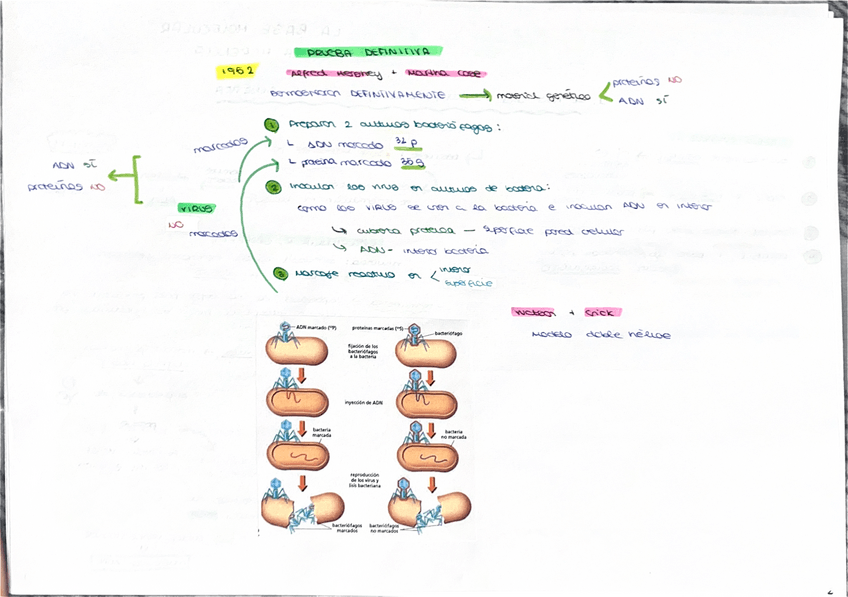 PRUEBA DEFINITIVA
1952 Alfred Hershey + Martha Case
Demostraron DEFINITIVAMENTE → material genético
proteínas NO
ADN SÍ
1 Preparan 2 cultivos bacteriófagos:
marcados
ADN marcado 32 P
proteína marcado 35 S
ADN SÍ
proteínas NO
2 Inoculan los virus en cultivos de bacteria:
VIRUS
como los VIRUS se unen a la bacteria e inoculan ADN en interior
NO
marcados
cubierta proteica — superficie pared celular
ADN - interior bacteria
3 Marcaje reactivo en
interior
superficie
Watson + Crick
Modelo doble hélice
ADN marcado (³²P)
proteínas marcadas (³⁵S)
bacteriófago
fijación de los
bacteriófagos
a la bacteria
inyección de ADN
bacteria
marcada
bacteria
no marcada
reproducción
de los virus y
lisis bacteriana
bacteriófagos
marcados
bacteriófagos
no marcados